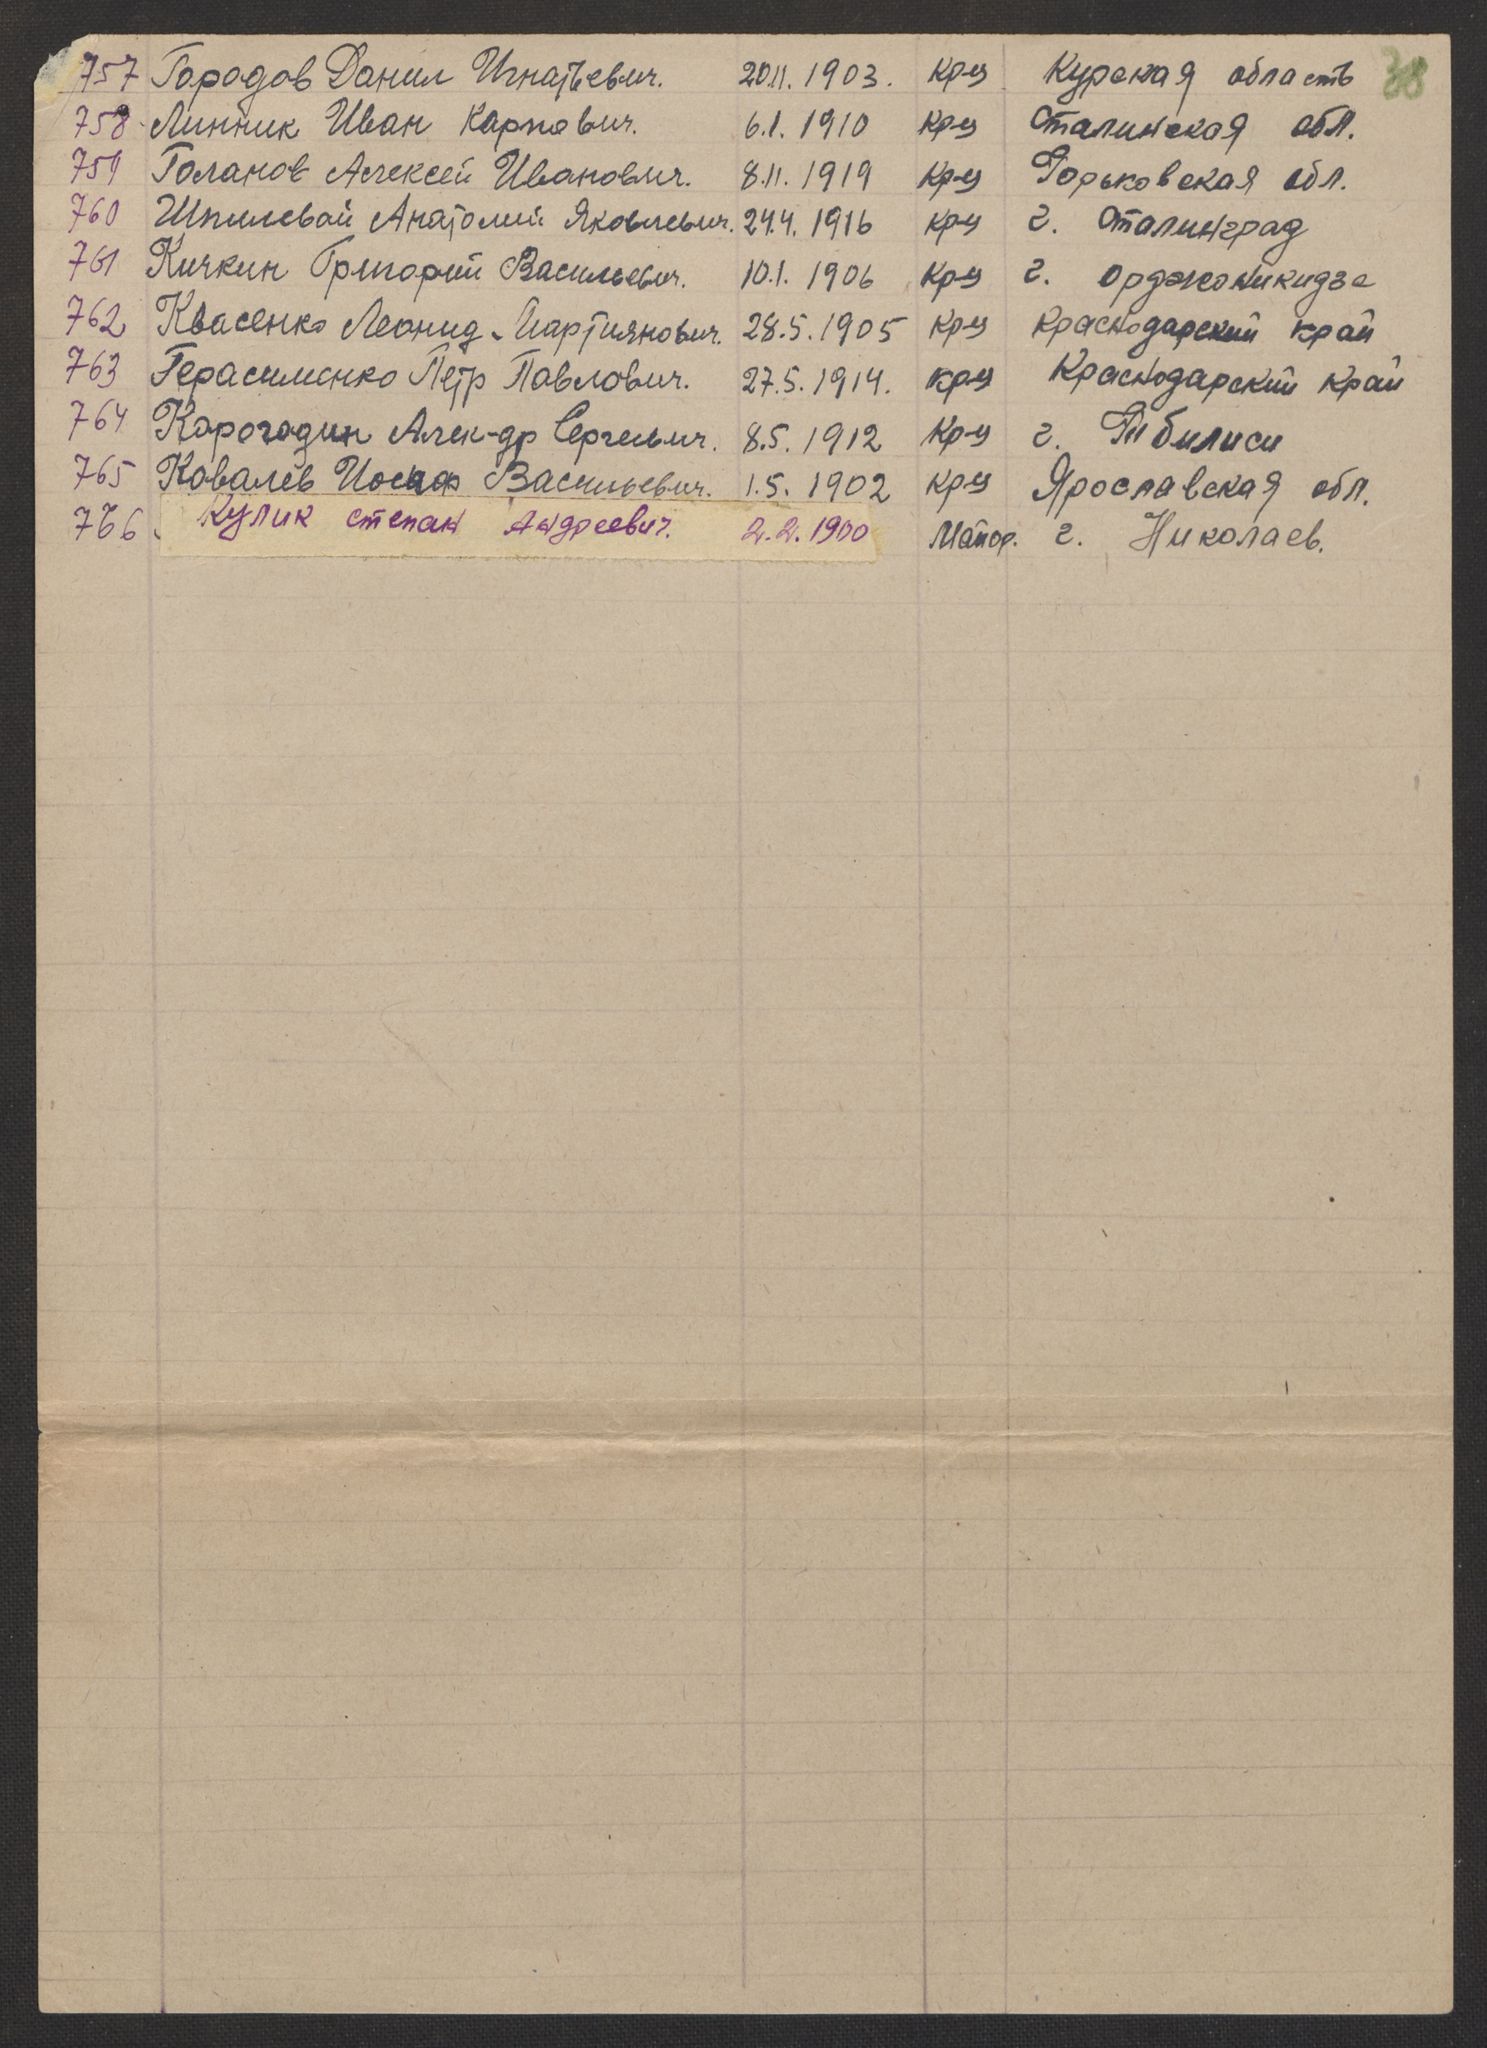 38
757 Городов Данил Игнатьевич. 20.11.1903. кр-ц Курская область
758 Линник Иван Карпович. 6.1.1910 кр-ц Сталинская обл.
759 Голанов Алексей Иванович. 8.11.1919 кр-ц Горьковская обл.
760 Шпилевой Анатолий Яковлевич. 24.4.1916 кр-ц г. Сталинград
761 Кичкин Григорий Васильевич. 10.1.1906 кр-ц г. Орджоникидзе
762 Квасенко Леонид Мартиянович. 28.5.1905 кр-ц Краснодарский край
763 Герасименко Петр Павлович. 27.5.1914. кр-ц Краснодарский край
764 Корогодин Алек-др Сергеевич. 8.5.1912 кр-ц г. Тбилиси
765 Ковалев Иосиф Васильевич. 1.5.1902 кр-ц Ярославская обл.
766 Кулик Степан Андреевич. 2.2.1900 Майор. г. Николаев.